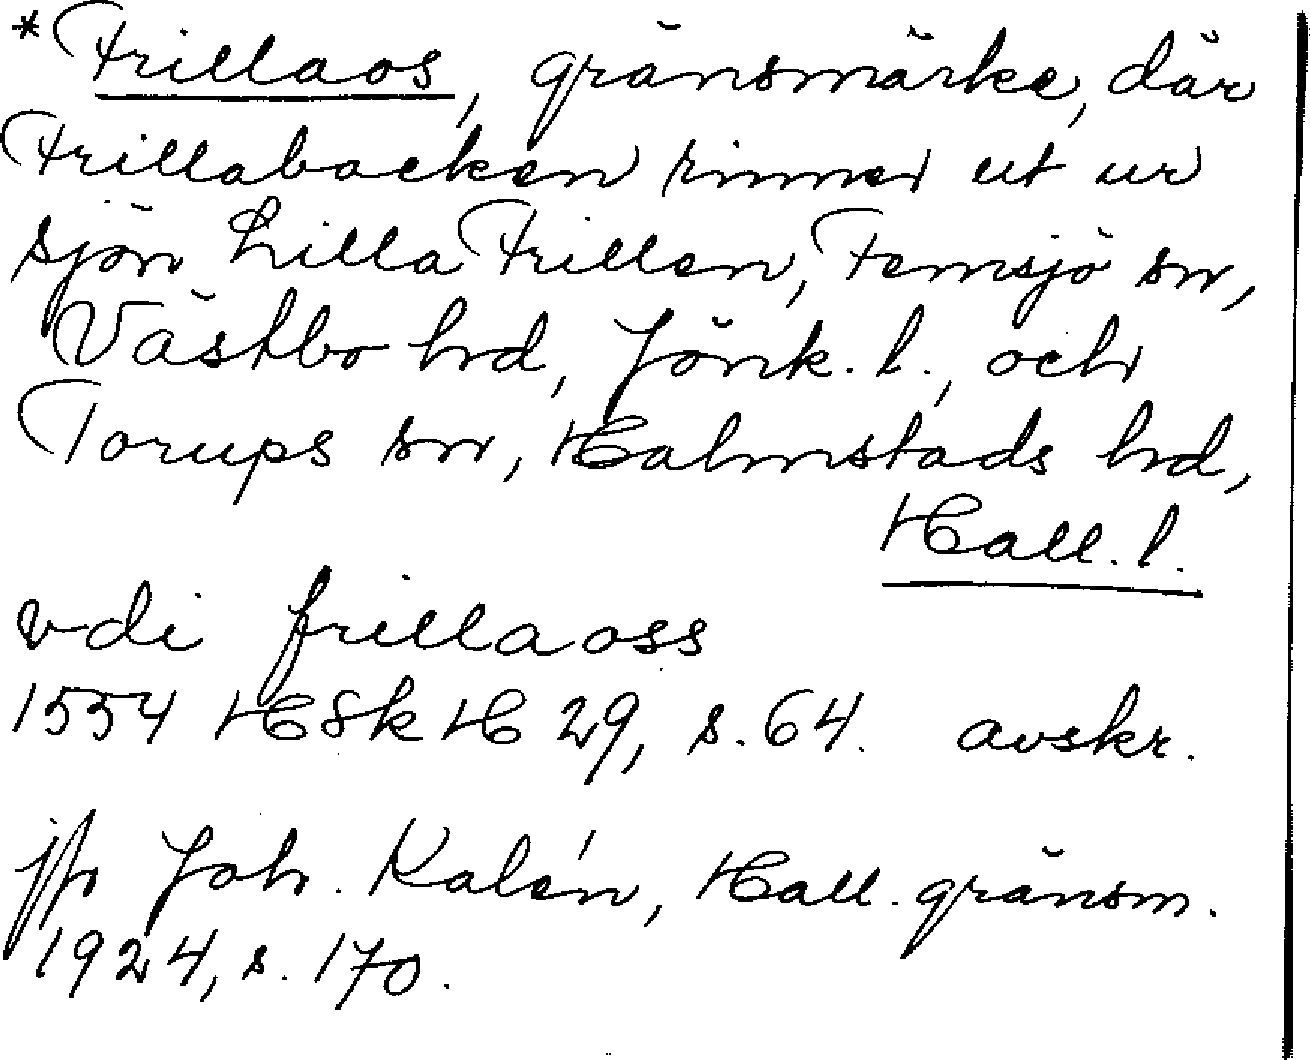 *Frillaos, gränsmärke, där
Frillabäcken rinner ut ur
sjön Lilla Frillen, Femsjö sn,
Västbo hd, Jönk. l., och
Torups sn, Halmstads hd,
Hall. l.
vdi frillaoss
1554 HSkH 29, s. 64. avskr.
jfr Joh. Kalén, Hall. gränsm.
1924, s. 170.